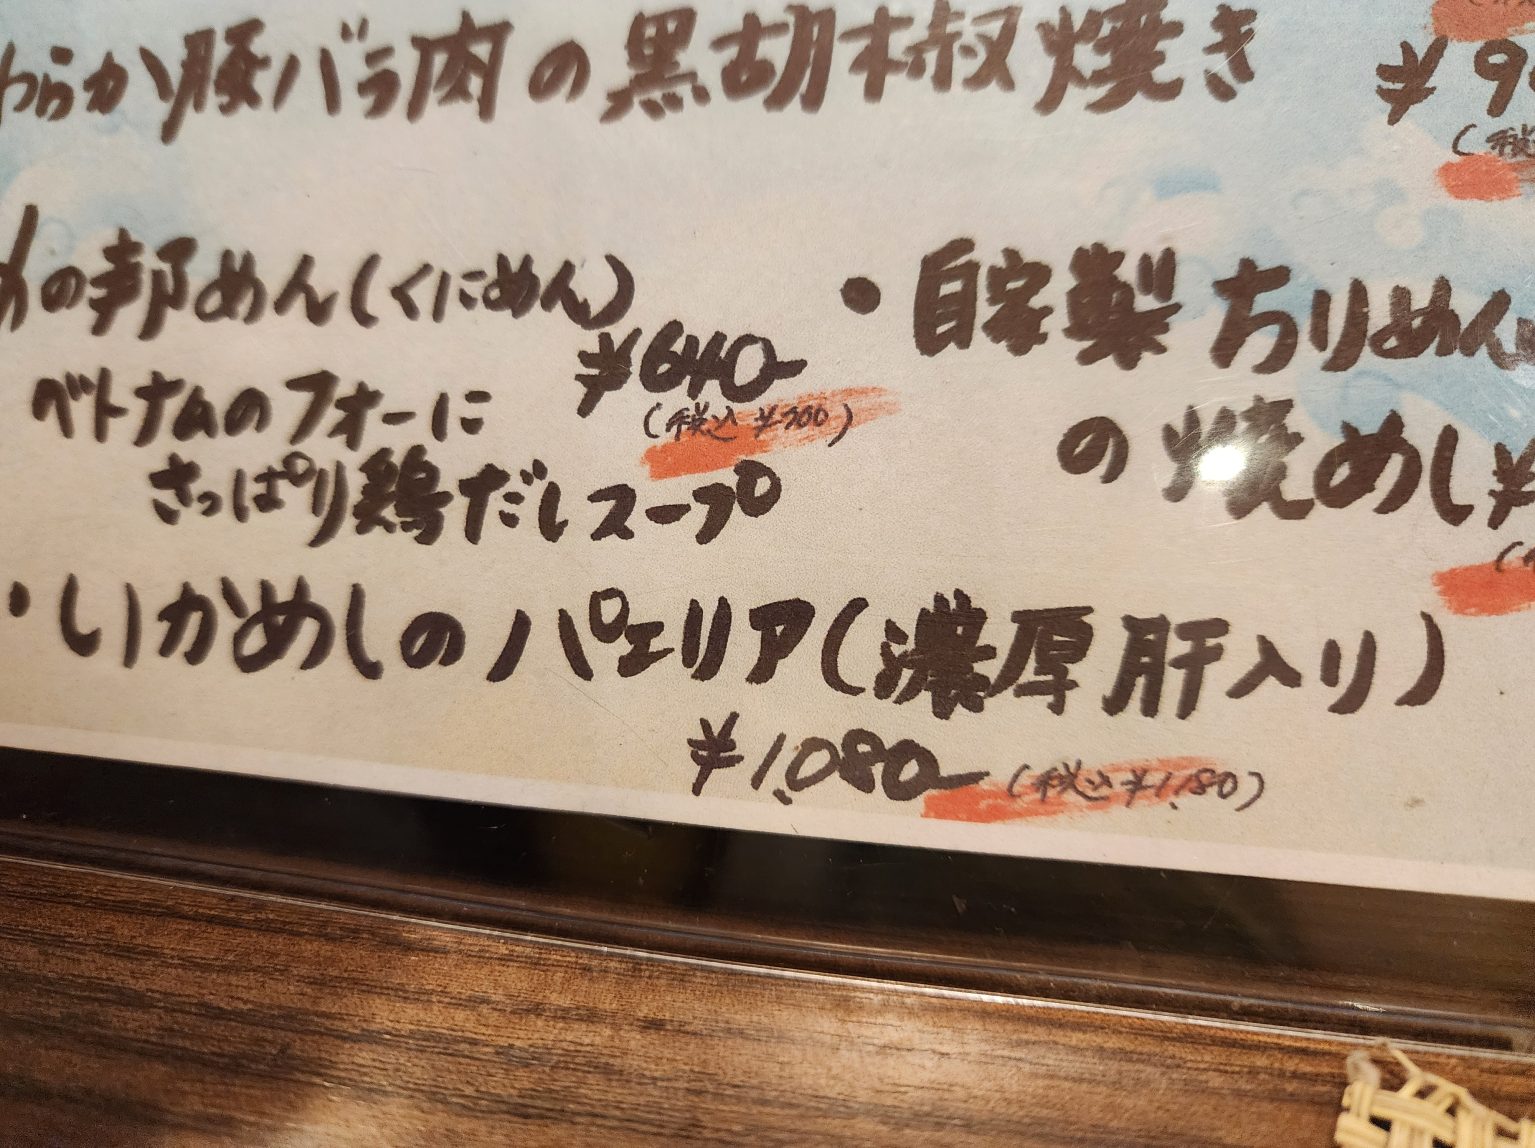 わらかい豚バラ肉の黒胡椒焼き
¥9
(税込
めの邦めん(くにめん)
¥640-
(税込¥700)
ベトナムのフォーに
さっぱり鶏だしスープ
・自家製ちりめん
の焼めし¥
・いかめしのパエリア(濃厚肝入り)
¥1,080-(税込¥1,180)